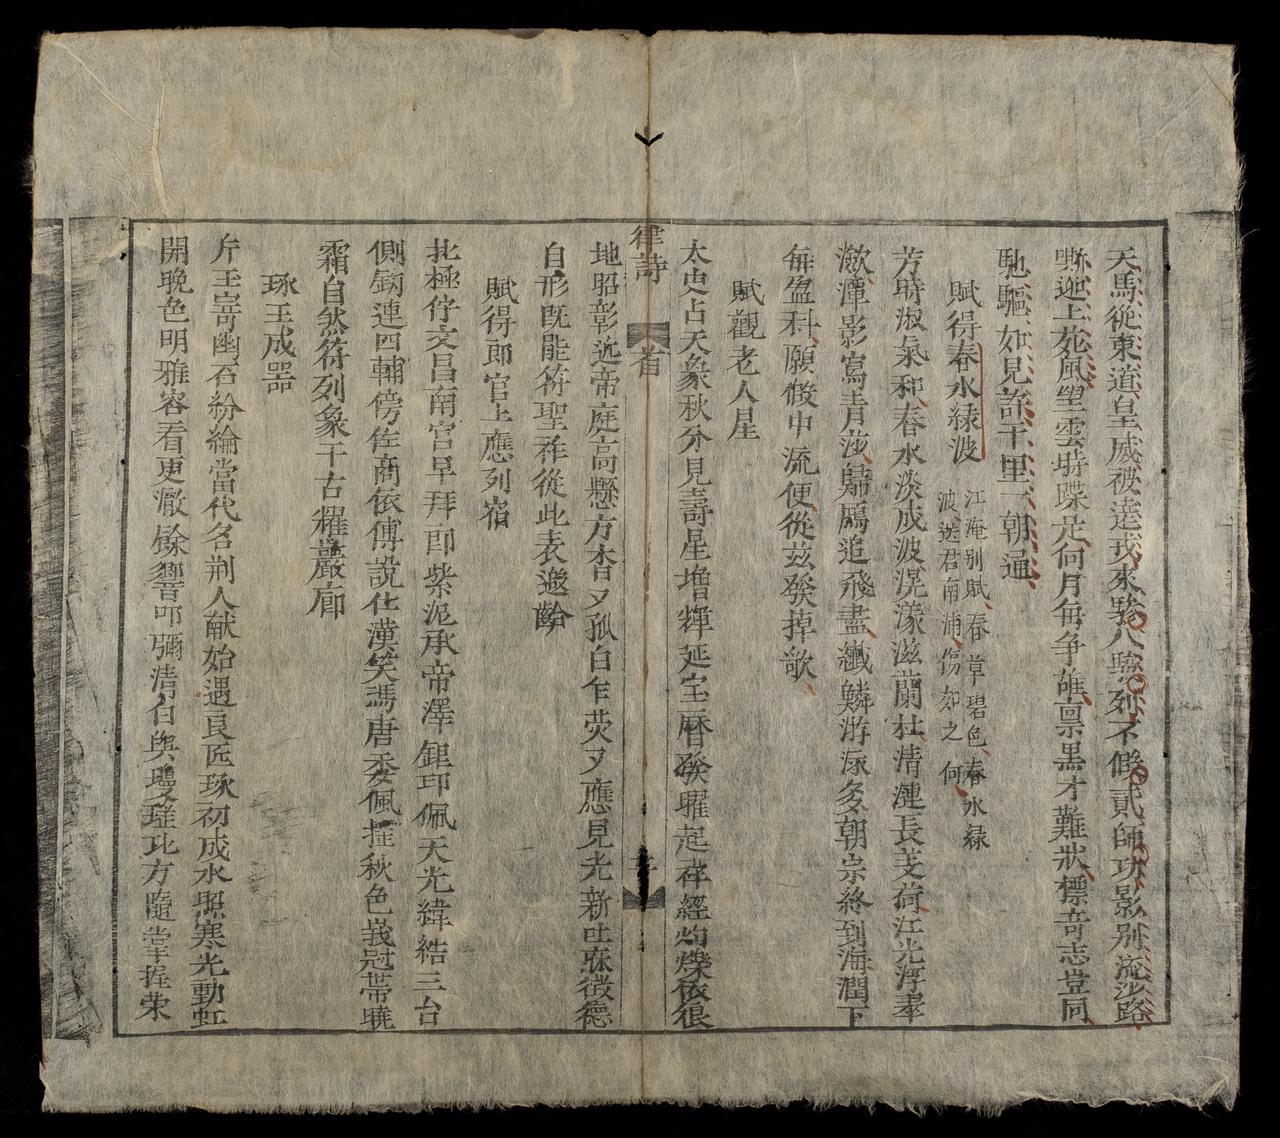 天馬從東道皇威被遠戎來驂八駿列不假貳師功影別流沙路
嘶迎上苑風望雲時蹀足向月每爭雄禀異才難狀標奇志豈同
馳驅如見許千里一朝通
賦得春水綠波
江淹別賦春草碧色春水綠
波送君南浦傷如之何
芳時淑氣和春水淡成波滉漾滋蘭杜清漣長芰荷江光浮牽
瀲潭影寫青莎歸鴈追飛盡纖鱗游泳多朝宗終到海潤下
每盈科願假中流便從兹發掉歌
賦觀老人星
太史占天象秋分見壽星增輝延宝曆發曜起祥經灼爍依狼
律詩 首
地昭彰近帝庭高懸方杳又孤白乍荧又應見光新吐休徵德
自形既能符聖祚從此表遐齡
賦得郎官上應列宿
北極佇文昌南宫早拜郎紫泥承帝澤銀印佩天光緯結三台
側鈎連四輔傍佐商依傅說仕漢笑馮唐委佩摇秋色峩冠帶曉
霜自然符列象千古耀巖廊
琢玉成器
斤玉寄幽石紛綸當代名荆人献始遇良匠琢初成水照寒光動虹
開晚色明雅容看更澈餘響叩彌清自與瓊瑤比方隨掌握荣